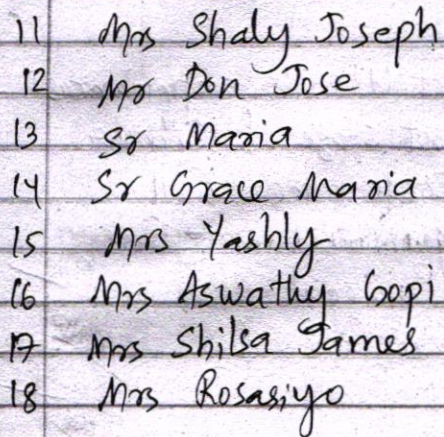 11 Mrs Shaly Joseph
12 Mr Don Jose
13 Sr Maria
14 Sr Grace Maria
15 Mrs Yashly
16 Mrs Aswathy Gopi
17 Mrs Shilsa James
18 Mrs Rosasiyo